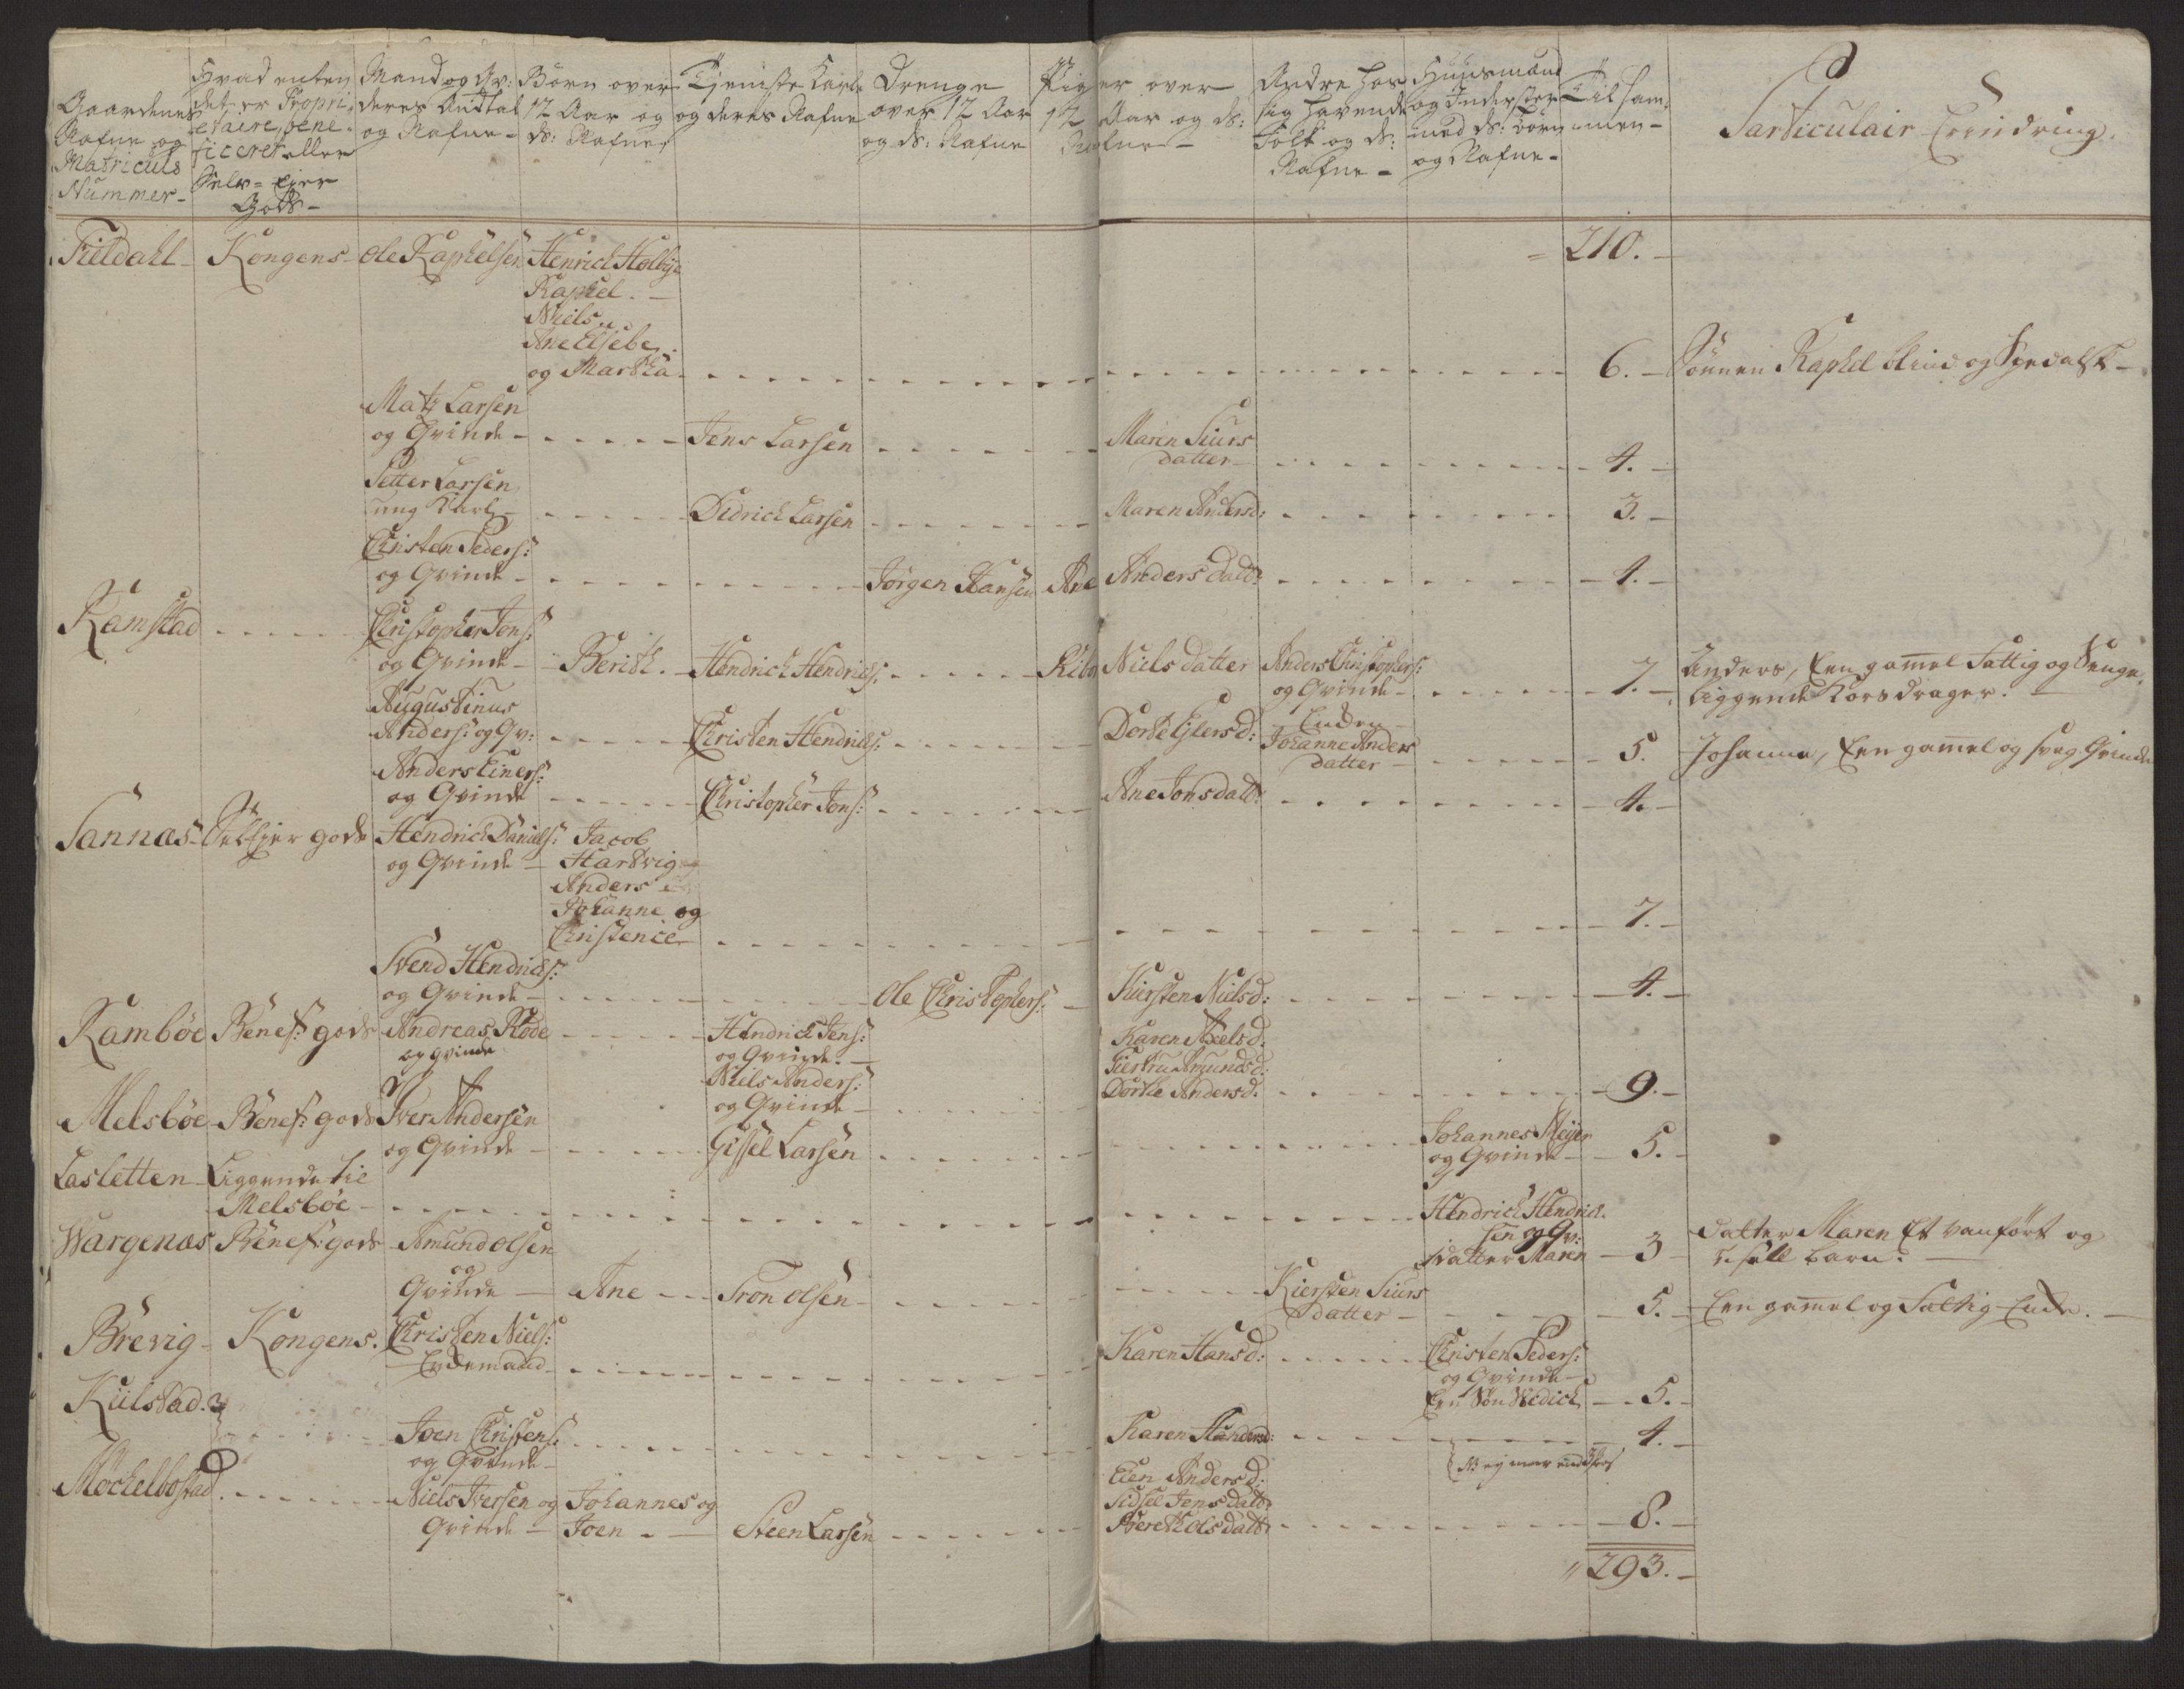 Gaardenes Nafne og Matriculs Nummer-
Hvad enten det er Propri- etaire, bene- ficeret eller Selv-Ejer Gods-
Mand og Qv: deres Andtal og Nafne-
Børn over 12 Aar og ds: Nafne
Tjeniste Karle og deres Nafne
Drenge over 12 Aar og ds: Nafne
Piger over 12 Aar og ds: Nafne-
Andre hos sig havende Folk og ds: Nafne-
Huusmænd og Inderster med ds: børn og Nafne-
Tilsam- men-
Particulair Erindring.
Fieldahl- Kongens- Ole Raphelsen Henrich Holbye = 210.-
Raphel.-
Niels
Ane Elsebe
og Martha 6.- Sønnen Raphel blind og Spedalsk-
Matz Larsen
og Qvinde- Jens Larsen Maren Siurs
datter- 4.-
Petter Larsen
ung Karl- Didrich Larsen Maren Andersd: 3.-
Christen Peders:
og Qvinde- Jørgen Hansen Ane Anders datt: 4.-
Ramstad Christopher Jens:
og Qvinde- Berith.- Hendrich Hendrichs: Niels datter Anders Christophers:
og Qvinde- 7.- Anders, Een gamel Fattig og Senge-
liggende Korsdrager.-
Augustinus
Anders: og Qv: Christen Hendrichs: Dorte Ejlersd: Enken
Johanne Anders
datter- 5. Johanna, Een gamel og svag Qvinde
Anders Einers:
og Qvinde Christopher Jens: Ane Jonsdatt: 4.-
Sannæs- Selvejer gods Hendrich Daniels: Jacob
og Qvinde- Hartvig
Anders
Johanne og
Christence 7.-
Svend Hendrichs:
og Qvinde- Ole Christophers: Kiersten Nielsd: 4.-
Rambøe Benef: gods Andreas Rode Hendrich Jens: Karen Axelsd.
og Qvinde og Qvinde.- Giertru Amundsd:
Niels Anders: Dorthe Andersd. 9.-
og Qvinde-
Melsbøe- Benef: gods Iver Andersen Johannes Meyer
og Qvinde- Gissel Larsen og Qvinde- 5.-
Lasletten- Liggende til
Melsbøe- Hendrich Hendrich-
sen og Qv:
datter Maren- 3 Datter Maren Et vanført og
usell barn.-
Wargenæs Benef: gods Amund Olsen
og
Qvinde- Ane- Tron Olsen- Kiersten Siurs
datter- 5.- Een gamel og Fattig Enke.-
Brevig- Kongens. Christen Niels:
Enkemand- Karen Hansd: Christen Peders:
og Qvinde-
Een Søn Hedich 5.-
Kulstad.
Joen Christens:
og Qvinde- Karen 4.-
Møchelbostad. Niels Iversen og Johannes og Elen Andersd:
Qvinde- Joen.- Steen Larsen Sidsel Jensdatt:
Berethe Olsdatt: 8.-
293.-